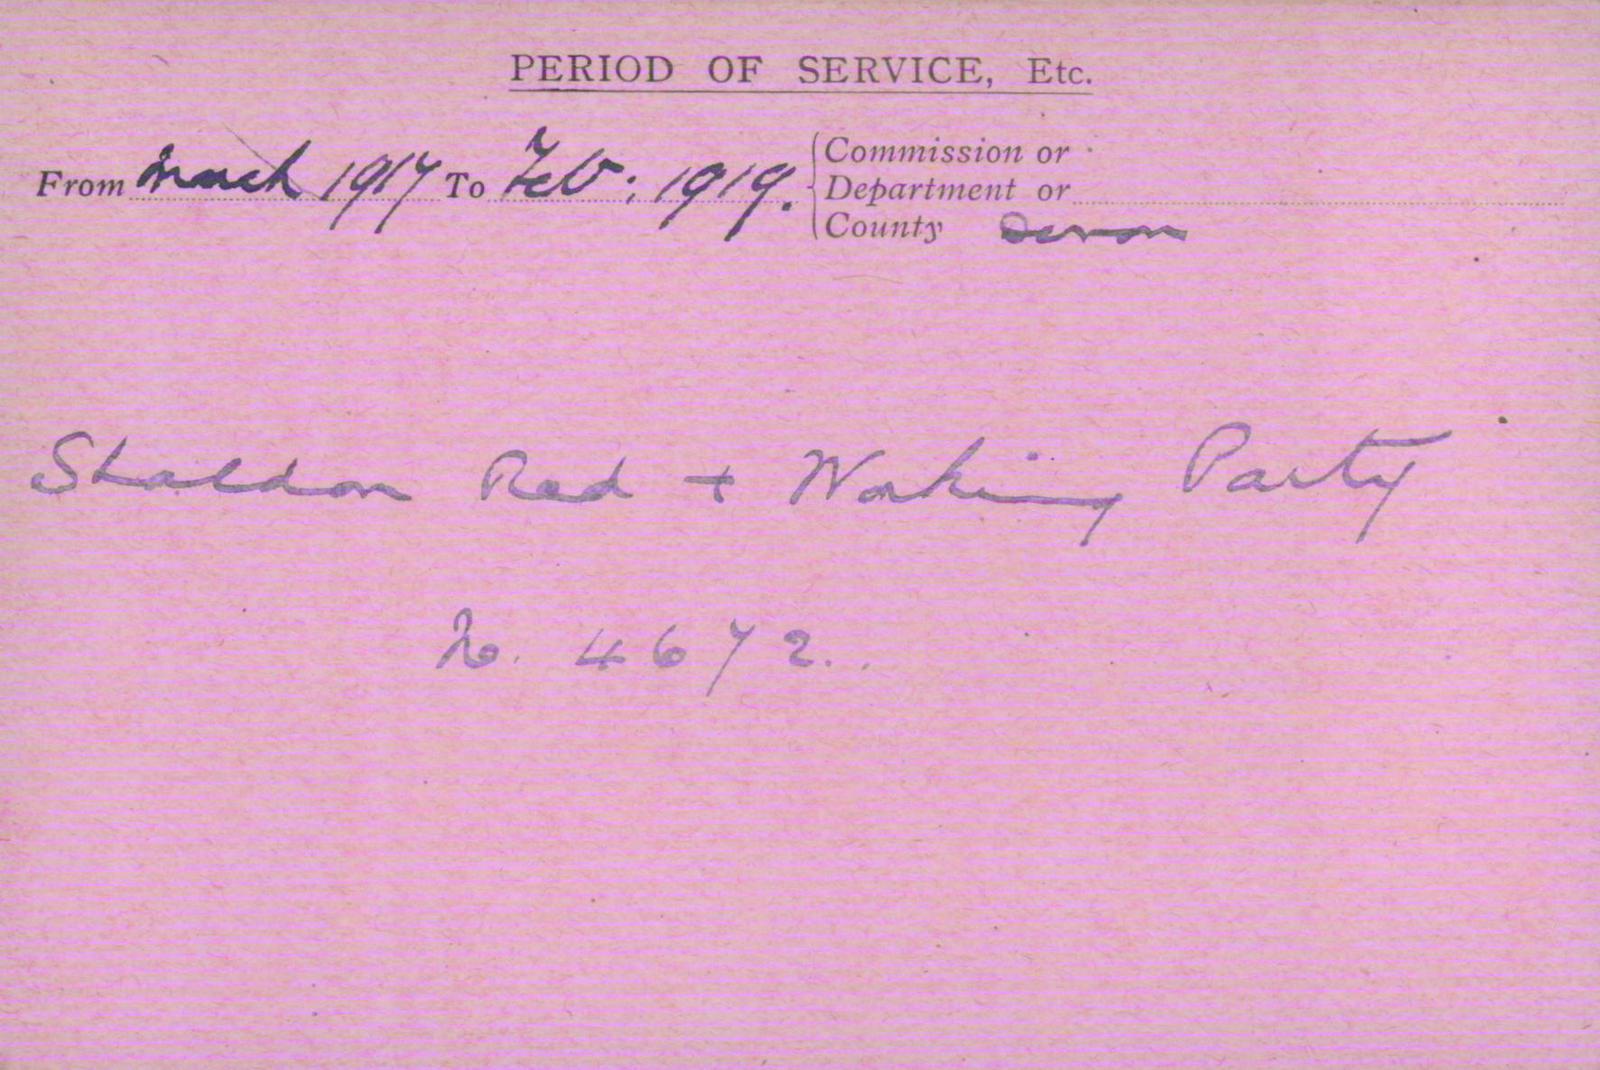 PERIOD OF SERVICE, Etc.
From March 1917 To Feb: 1919. Commission or
Department or
County Devon
Shaldon Red + Working Party
No. 4672.